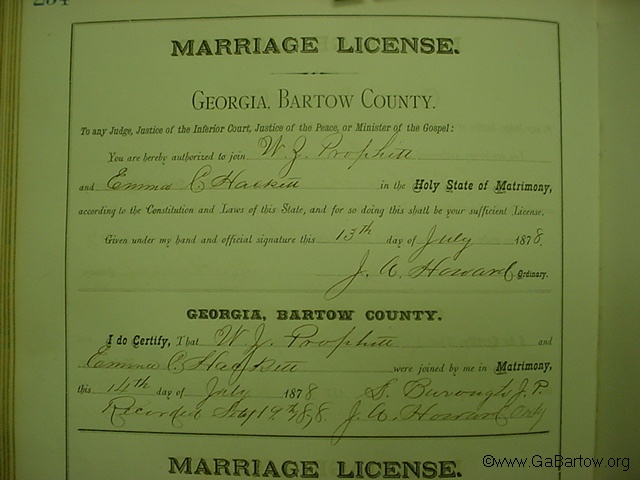 MARRIAGE LICENSE.
GEORGIA, BARTOW COUNTY.
To any Judge, Justice of the Inferior Court, Justice of the Peace, or Minister of the Gospel:
You are hereby authorized to join W. J. Prophitt
and Emma C Hackett in the Holy State of Matrimony,
according to the Constitution and Laws of this State, and for so doing this shall be your sufficient License.
Given under my hand and official signature this 13th day of July 1878.
J. A. Howard, Ordinary.
GEORGIA, BARTOW COUNTY.
I do Certify, That W. J. Prophitt and
Emma C. Hackett were joined by me in Matrimony,
this 14th day of July 1878 S. Buroughs J. P.
Recorded 1878. J. A. Howard Ordy
MARRIAGE LICENSE.
©www.GaBartow.org